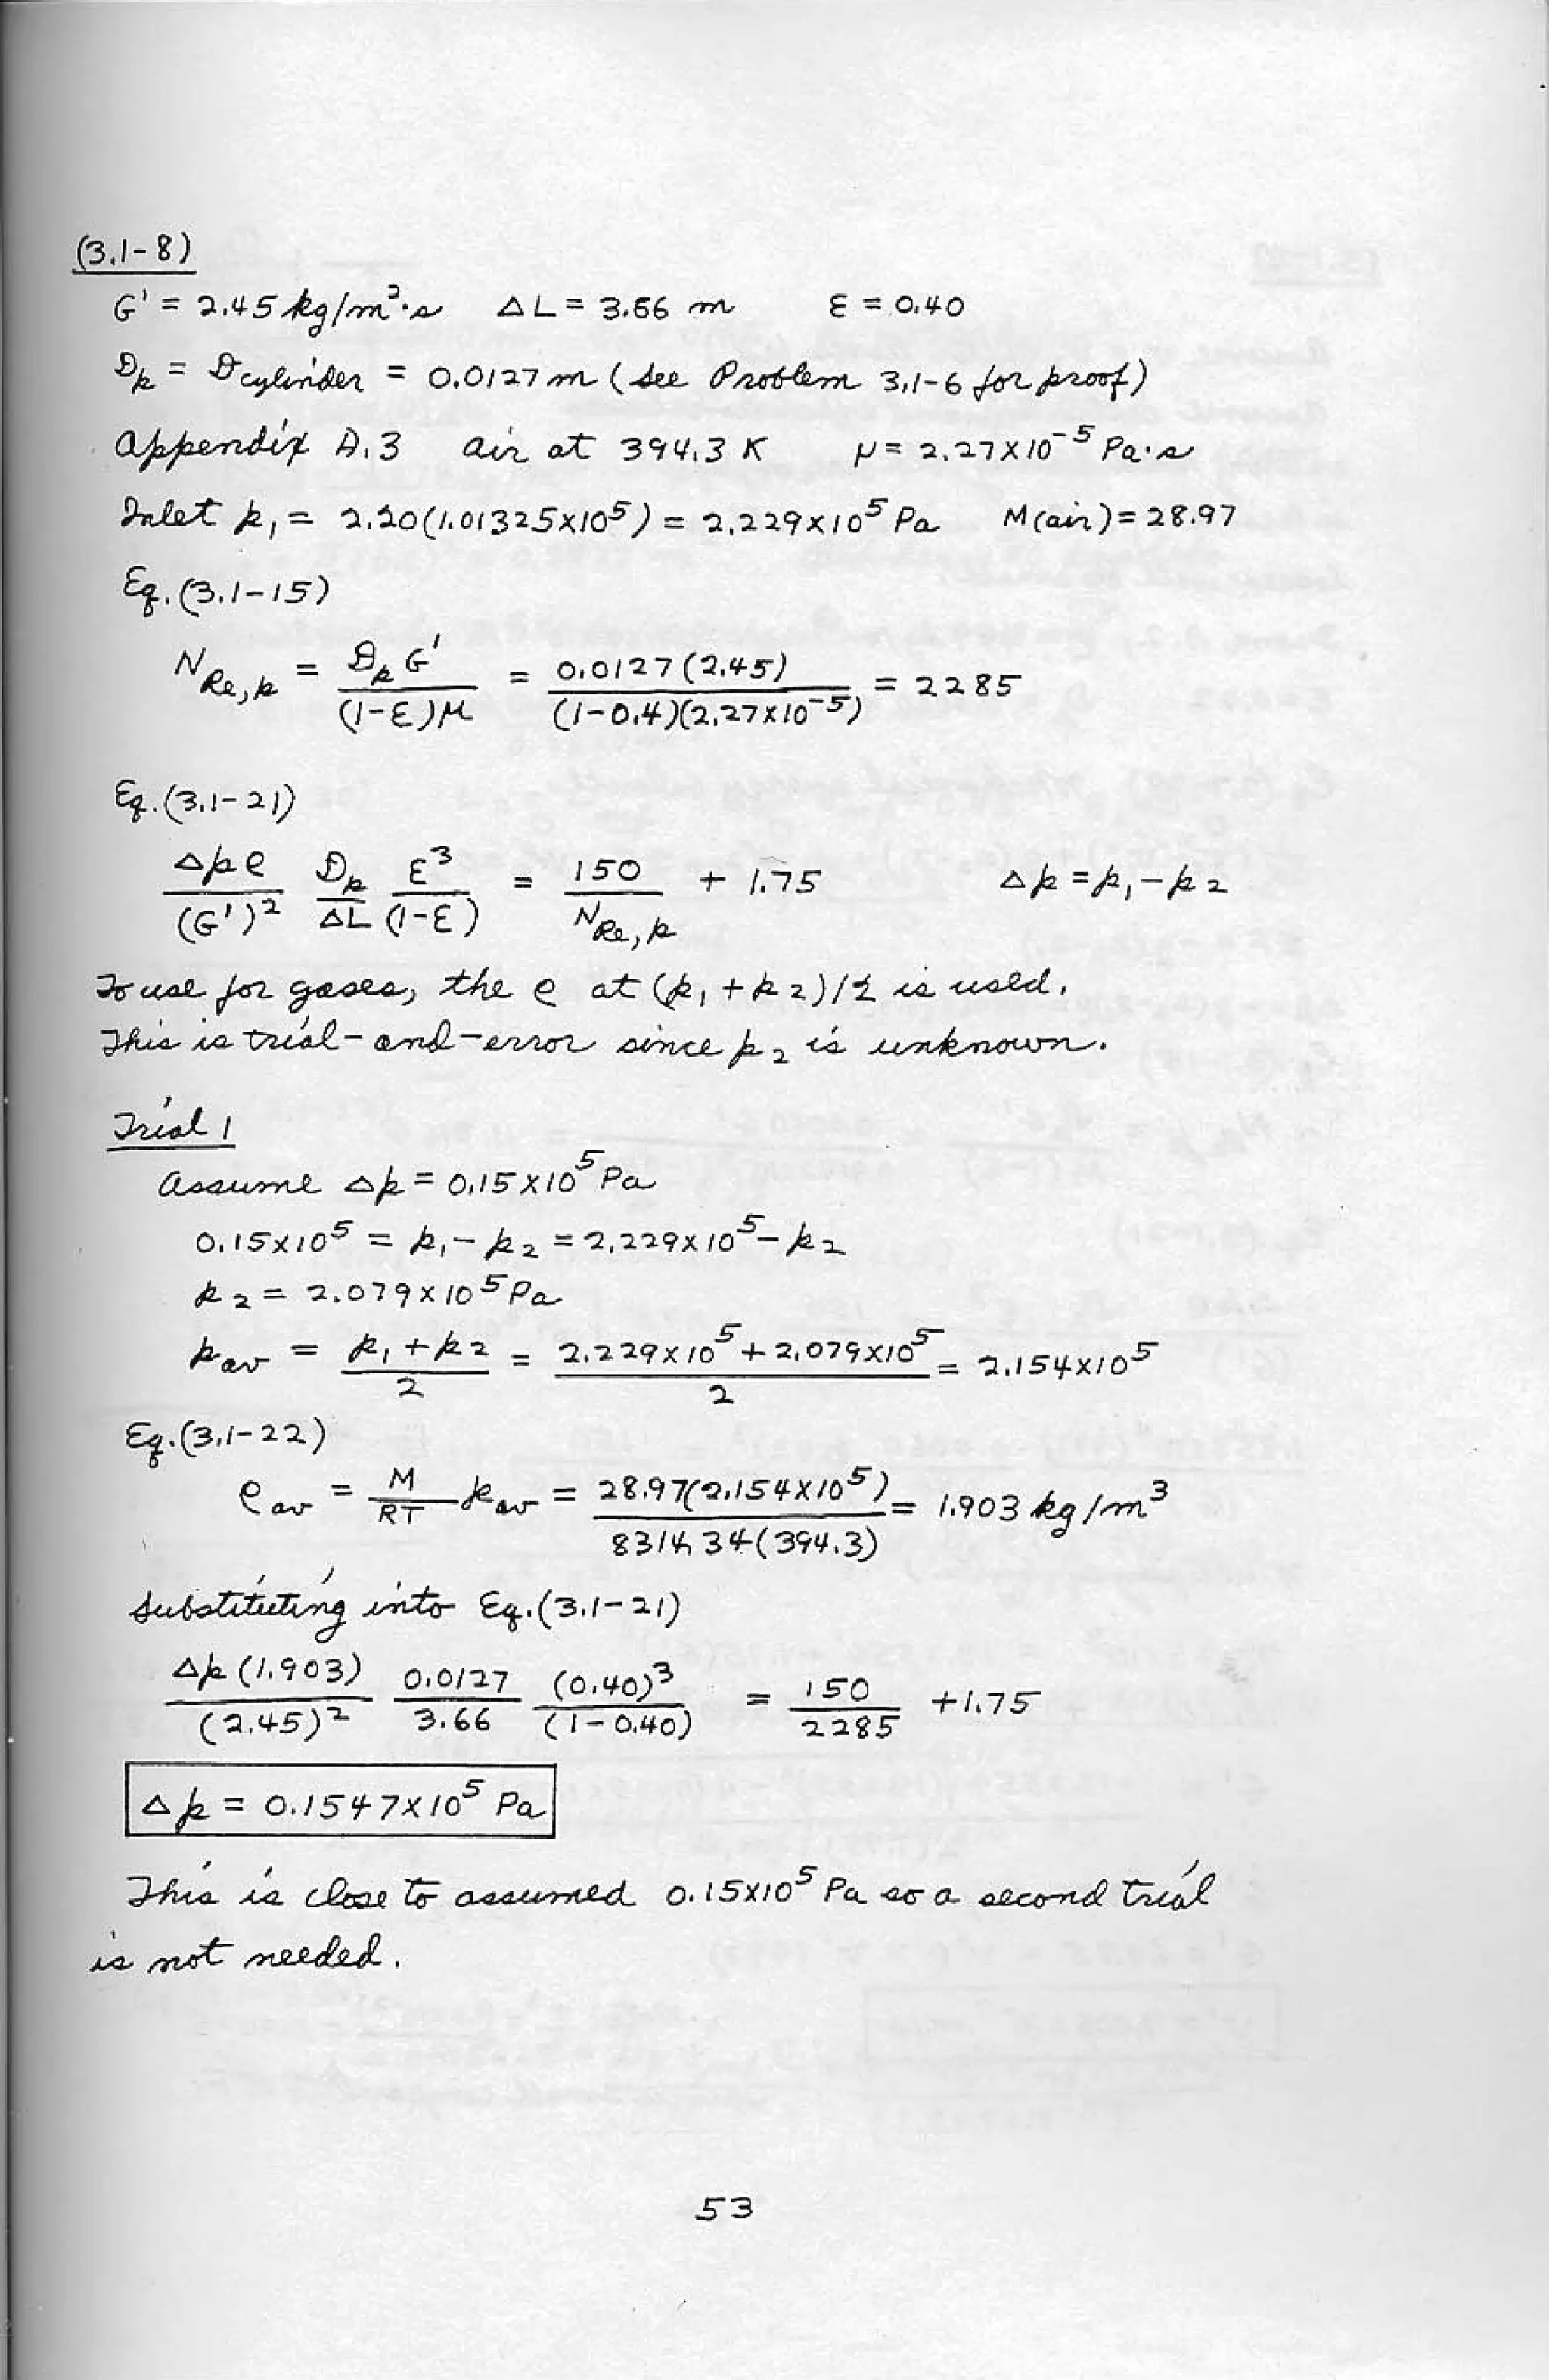 (3.1-8)
G' = 2.45 kg/m²·s   ΔL = 3.66 m   ε = 0.40
Dp = Dcylinder = 0.0127 m (see Problem 3.1-6 for proof)
Appendix A.3   air at 394.3 K   μ = 2.27×10⁻⁵ Pa·s
Inlet p₁ = 2.20(1.01325×10⁵) = 2.229×10⁵ Pa   M(air) = 28.97
Eq. (3.1-15)
N_Re,p = Dp G' / (1-ε)μ = 0.0127(2.45) / (1-0.4)(2.27×10⁻⁵) = 2285
Eq. (3.1-21)
Δpρ/(G')² Dp/ΔL ε³/(1-ε) = 150/N_Re,p + 1.75   Δp = p₁ - p₂
To use for gases, the ρ at (p₁ + p₂)/2 is used.
This is trial-and-error since p₂ is unknown.
Trial 1
Assume Δp = 0.15×10⁵ Pa
0.15×10⁵ = p₁ - p₂ = 2.229×10⁵ - p₂
p₂ = 2.079×10⁵ Pa
p_av = (p₁ + p₂)/2 = (2.229×10⁵ + 2.079×10⁵)/2 = 2.154×10⁵
Eq. (3.1-22)
ρ_av = M/RT p_av = 28.97(2.154×10⁵) / 8314.34(394.3) = 1.903 kg/m³
Substituting into Eq. (3.1-21)
Δp(1.903)/(2.45)² 0.0127/3.66 (0.40)³/(1-0.40) = 150/2285 + 1.75
Δp = 0.1547×10⁵ Pa
This is close to assumed 0.15×10⁵ Pa so a second trial
is not needed.
53